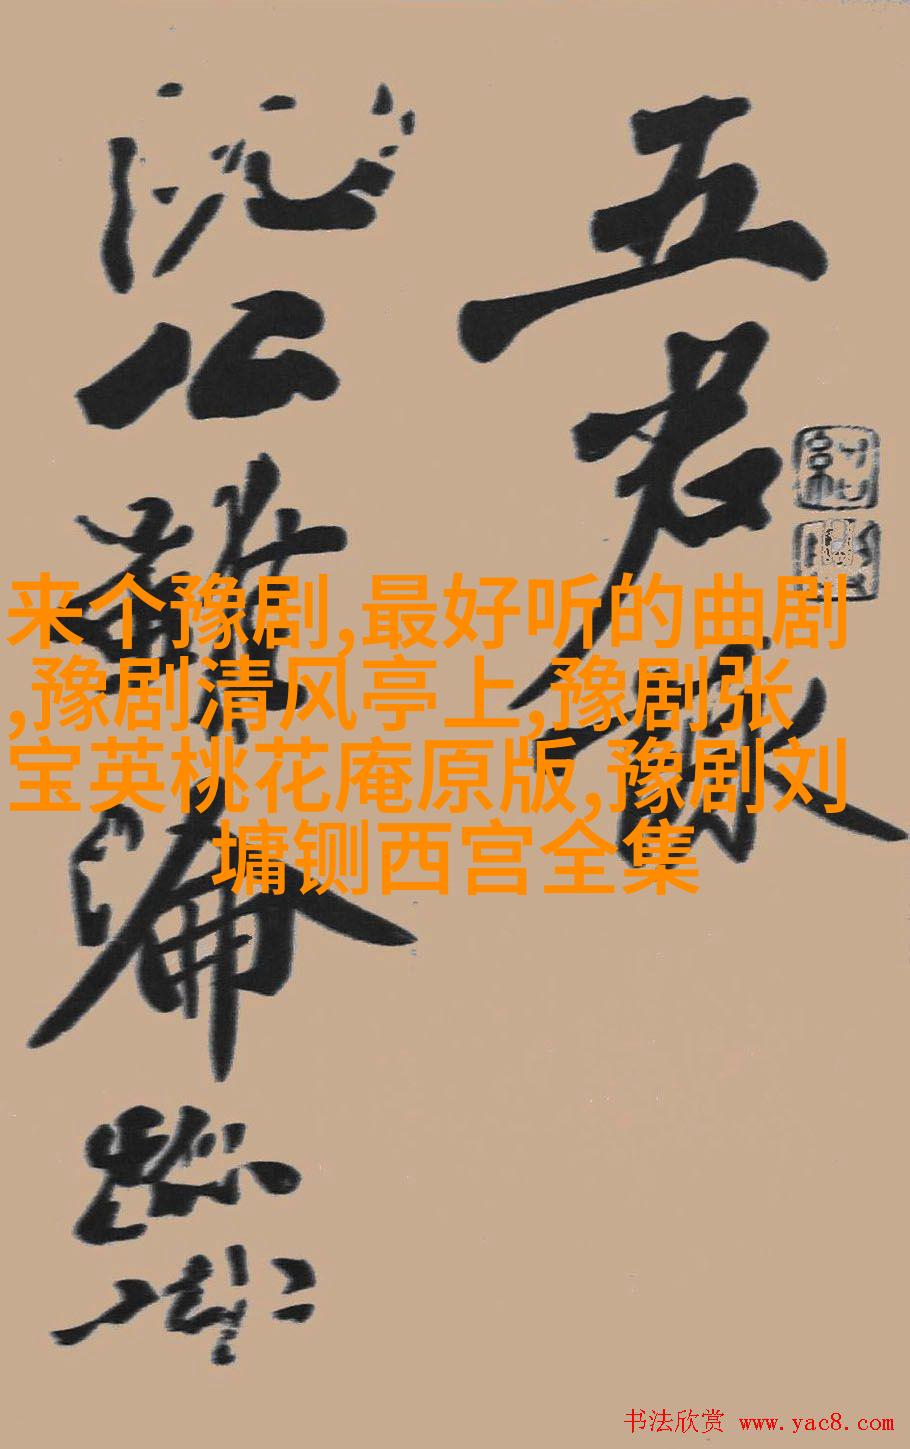 五君詠
阮公雖淪跡
来个豫剧,最好听的曲剧
,豫剧清风亭上,豫剧张
宝英桃花庵原版,豫剧刘
墉铡西宫全集
书法欣赏 www.yac8.com